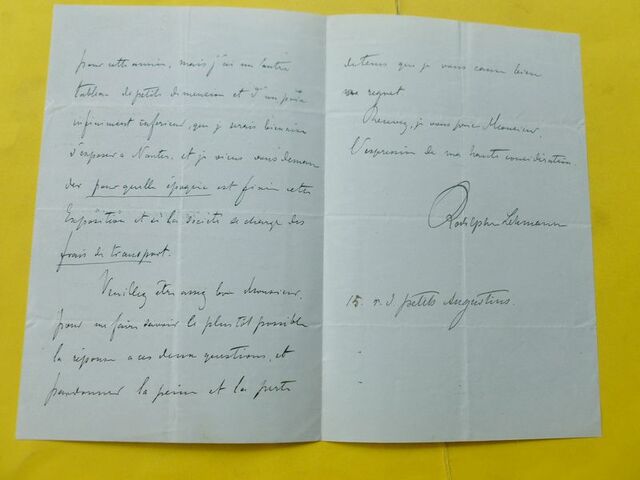 pour cette année, mais j'ai un autre
tableau de petite dimension et d'un prix
infiniment inférieur, que je serais bien aise
d'exposer a Nantes. et je viens vous deman
der pour quelle époque est fixée cette
Exposition et si la Société se charge des
frais de transport.
Veuillez être assez bon Monsieur,
pour me faire savoir le plus tôt possible
la réponse a ces deux questions, et
pardonner la peine et la perte
de tems que je vous cause bien
a regret
Recevez, je vous prie Monsieur,
l'expression de ma haute considération.
Rodolphe Lehmann
15. r. d. petits Augustins.